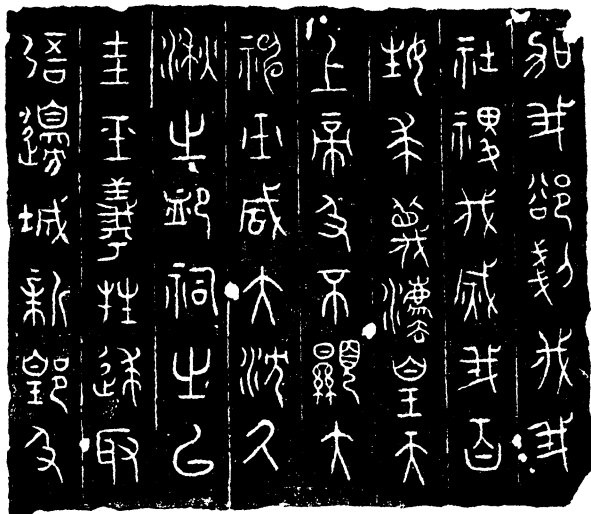 加我郤剗伐我
社稷伐烕我百
姓求蔑灋皇天
上帝及不顯大
神巫咸大沈久
湫之卹祠之以
圭玉羲牲逑取
吾邊城新鄓及